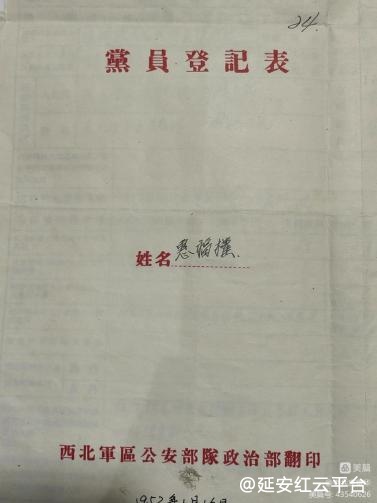 24.
黨員登記表
姓名 惠福撲.
西北軍區公安部隊政治部翻印
1952年1月16日
美篇
@延安红云平台
美篇号: 43540626